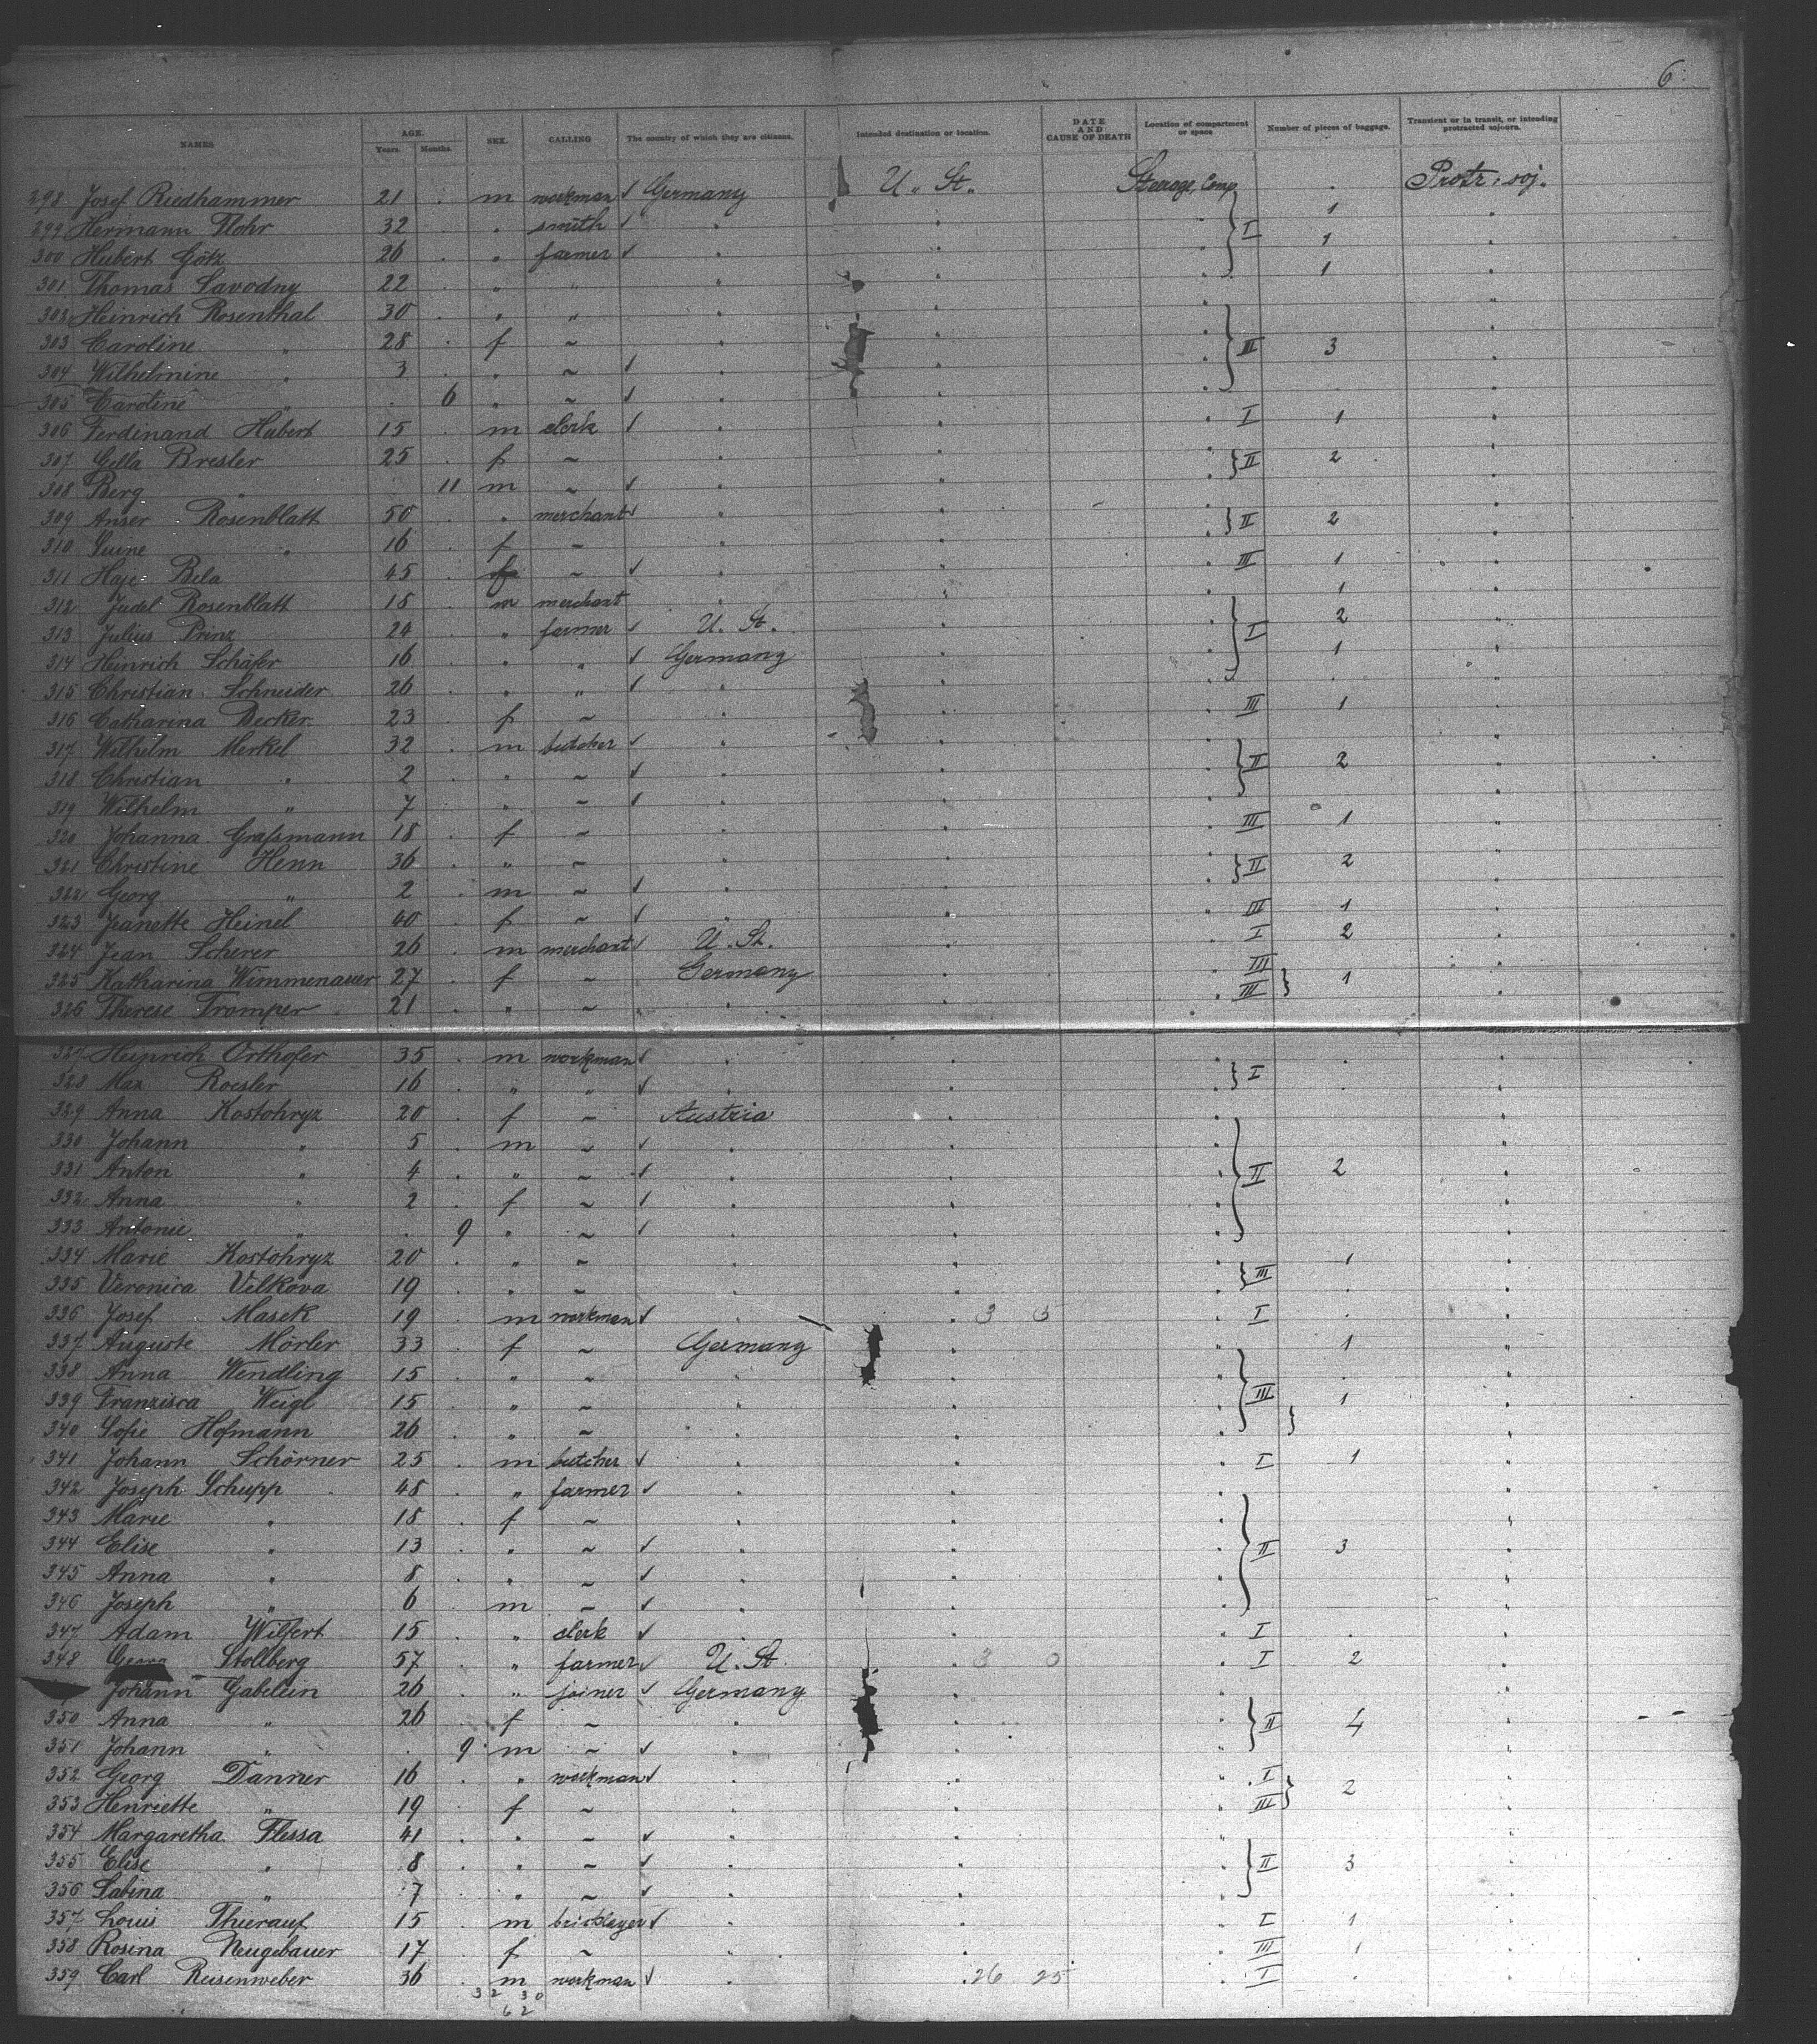 6
NAMES AGE. Years. Months. SEX. CALLING The country of which they are citizens. Intended destination or location. DATE AND CAUSE OF DEATH Location of compartment or space Number of pieces of baggage. Transient or in transit, or intending protracted sojourn.
298 Josef Riedhammer 21 . m workman ✓ Germany U. St. Steerage, Comp . Protr. soj.
299 Hermann Flohr 32 . " smith ✓ " " " I 1 "
300 Hubert Götz 26 . " farmer ✓ " " " 1 "
301 Thomas Savodny 22 . " " " " " 1 "
302 Heinrich Rosenthal 30 . " " " " " "
303 Caroline " 28 . f ~ " " " III 3 "
304 Wilhelmine " 3 . " ~ ✓ " " " "
305 Caroline " . 6 " ~ ✓ " " " "
306 Ferdinand Hubert 15 . m clerk ✓ " " " I 1 "
307 Gella Bresler 25 . f ~ " " " II 2 "
308 Berg " 11 m ~ ✓ " " " "
309 Anser Rosenblatt 50 . " merchant ✓ " " " II 2 "
310 Suine " 16 . f ~ " " " "
311 Haje Bela 45 . f ~ ✓ " " " III 1 "
312 Judel Rosenblatt 18 . m merchant " " " 1 "
313 Julius Prinz 24 . " farmer ✓ U. St. " " I 2 "
314 Heinrich Schäfer 16 . " " ✓ Germany " " 1 "
315 Christian Schneider 26 . " " ✓ " " " . "
316 Catharina Becker 23 . f ~ " " " III 1 "
317 Wilhelm Merkel 32 . m butcher ✓ " " " "
318 Christian " 2 . " ~ ✓ " " " II 2 "
319 Wilhelm " 7 . " ~ ✓ " " " "
320 Johanna Graſsmann 18 . f ~ " " " III 1 "
321 Christine Henn 36 . " ~ " " " II 2 "
322 Georg " 2 . m ~ ✓ " " " "
323 Jeanette Heinel 40 . f ~ ✓ " " " III 1 "
324 Jean Scherer 26 . m merchant ✓ U. St. " " I 2 "
325 Katharina Wimmenauer 27 . f ~ Germany " " III 1 "
326 Therese Tromper 21 . " ~ " " " III "
327 Heinrich Orthofer 35 . m workman ✓ " " " I . "
328 Max Roesler 16 . " " ✓ " " " . "
329 Anna Kostohryz 20 . f ~ Austria " " "
330 Johann " 5 . m ~ ✓ " " " "
331 Anton " 4 . " ~ ✓ " " " II 2 "
332 Anna " 2 . f ~ ✓ " " " "
333 Antonie " . 9 " ~ ✓ " " " "
334 Marie Kostohryz 20 . " ~ " " " 1 "
335 Veronica Velkova 19 . " ~ " " " III . "
336 Josef Masek 19 . m workman ✓ " " 3 5 " I . "
337 Auguste Mörler 33 . f ~ Germany " " 1 "
338 Anna Wendling 15 . " ~ " " " . "
339 Franzisca Weigl 15 . " ~ " " " III 1 "
340 Sofie Hofmann 26 . " ~ " " " "
341 Johann Schörner 25 . m butcher ✓ " " " I 1 "
342 Joseph Schupp 48 . " farmer ✓ " " " "
343 Marie " 18 . f ~ " " " "
344 Elise " 13 . " ~ ✓ " " " II 3 "
345 Anna " 8 . " ~ ✓ " " " "
346 Joseph " 6 . m ~ ✓ " " " "
347 Adam Wilfert 15 . " clerk ✓ " " " I . "
348 Georg Stollberg 57 . " farmer ✓ U. St. " 3 0 " I 2 "
Johann Gabelein 26 . " joiner ✓ Germany " " "
350 Anna " 26 . f ~ " " " II 4 "
351 Johann " . 9 m ~ ✓ " " " "
352 Georg Danner 16 . " workman ✓ " " " I 2 "
353 Henriette " 19 . f ~ " " " III "
354 Margaretha Flessa 41 . " ~ ✓ " " " "
355 Elise " 8 . " ~ ✓ " " " II 3 "
356 Sabina " 7 . " ~ ✓ " " " "
357 Louis Thierauf 15 . m bricklayer ✓ " " " I 1 "
358 Rosina Neugebauer 17 . f ~ " " " III 1 "
359 Carl Reisenweber 36 . m workman ✓ " " 26 25 " I . "
32 30
62